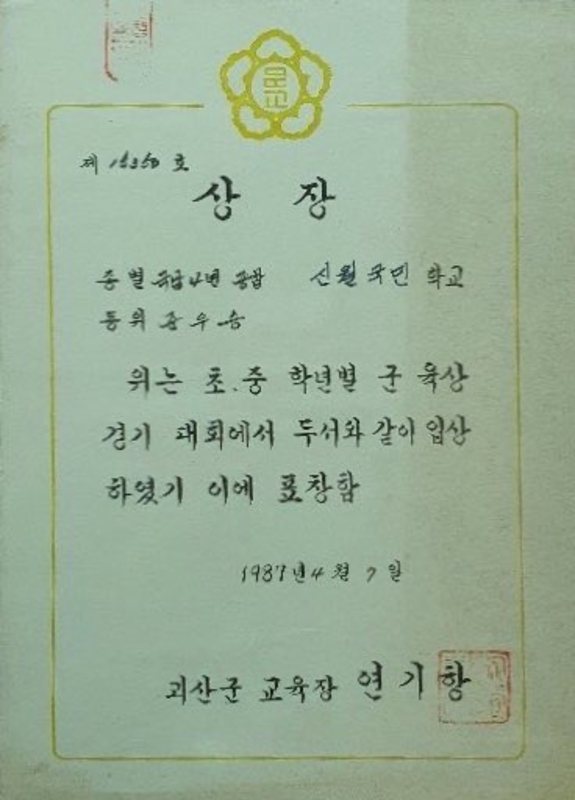 문교
제 15350 호
상 장
종별 국남4년 종합 신월국민학교
등위 종우승
위는 초.중 학년별 군 육상
경기 대회에서 두서와 같이 입상
하였기 이에 표창함
1987년 4월 7일
괴산군 교육장 연기항